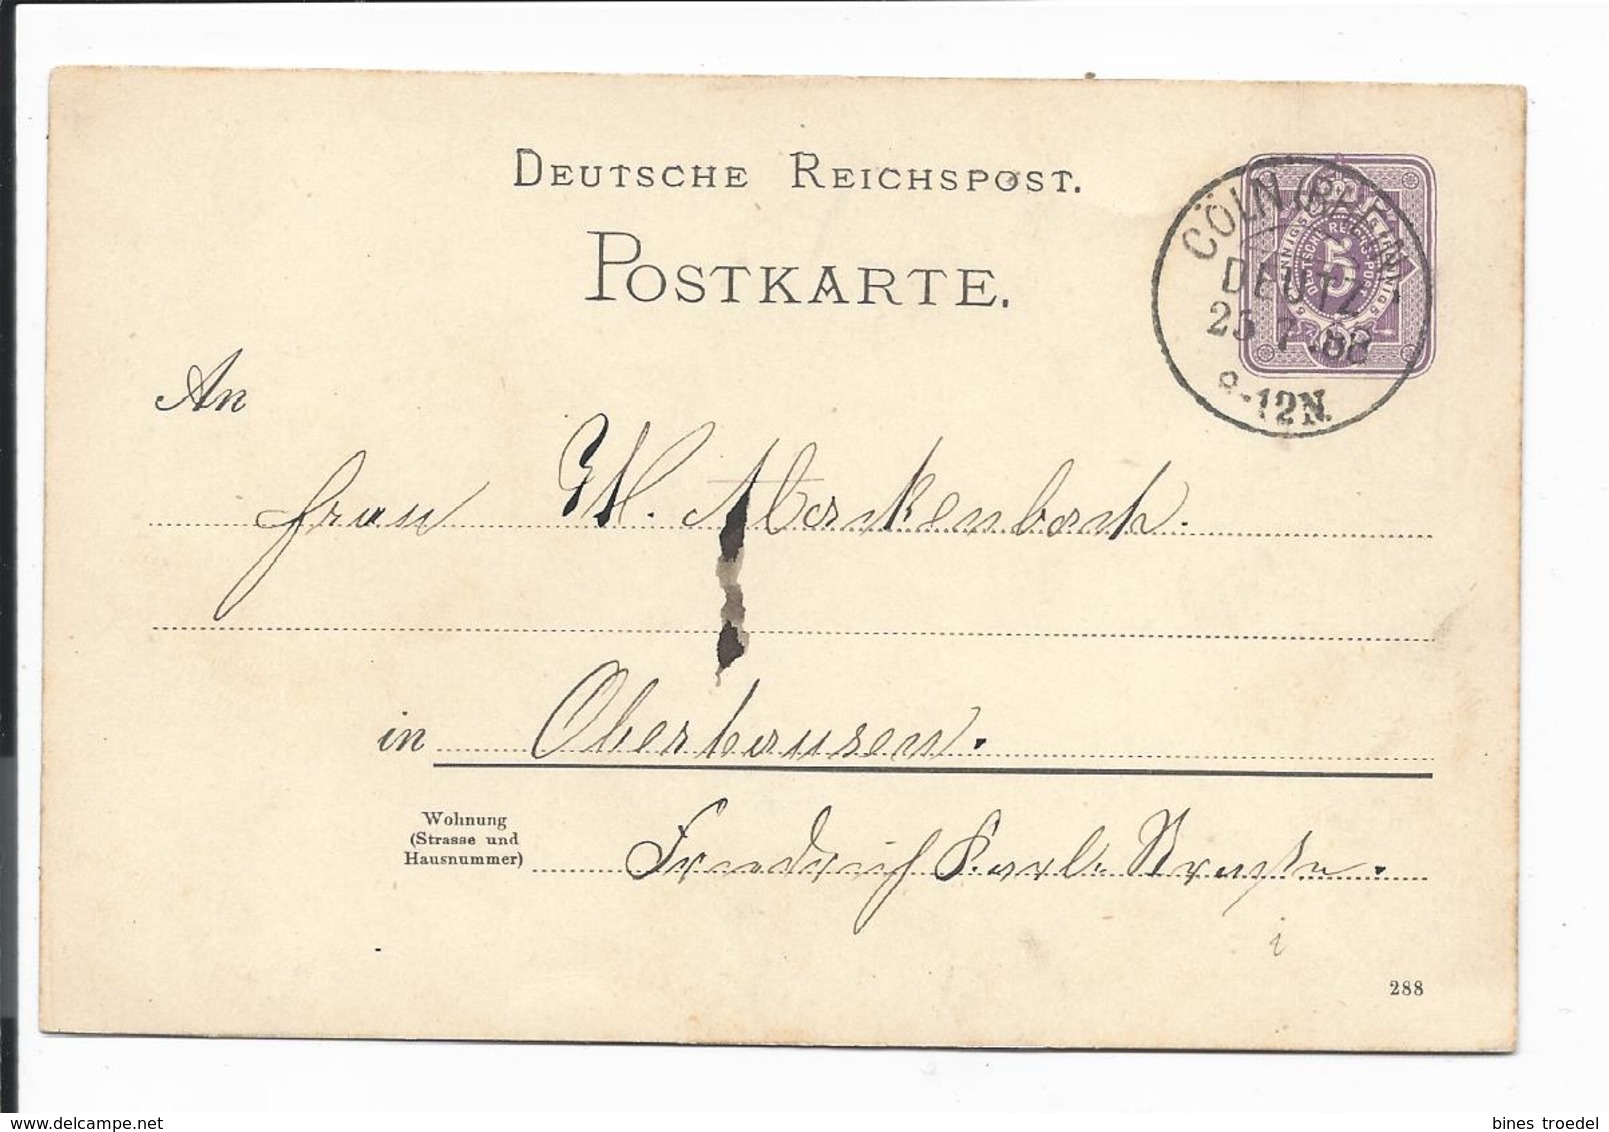 DEUTSCHE REICHSPOST.
POSTKARTE.
5 PFENNIG 5
DEUTSCHE REICHS-POST
5
CÖLN (RHEIN)
DEUTZ
25 7.88
8-12N.
An
Frau W. Morckenbach.
in Oberhausen.
Wohnung
(Strasse und
Hausnummer)
Friedrich Karl Straße.
288
bines troedel